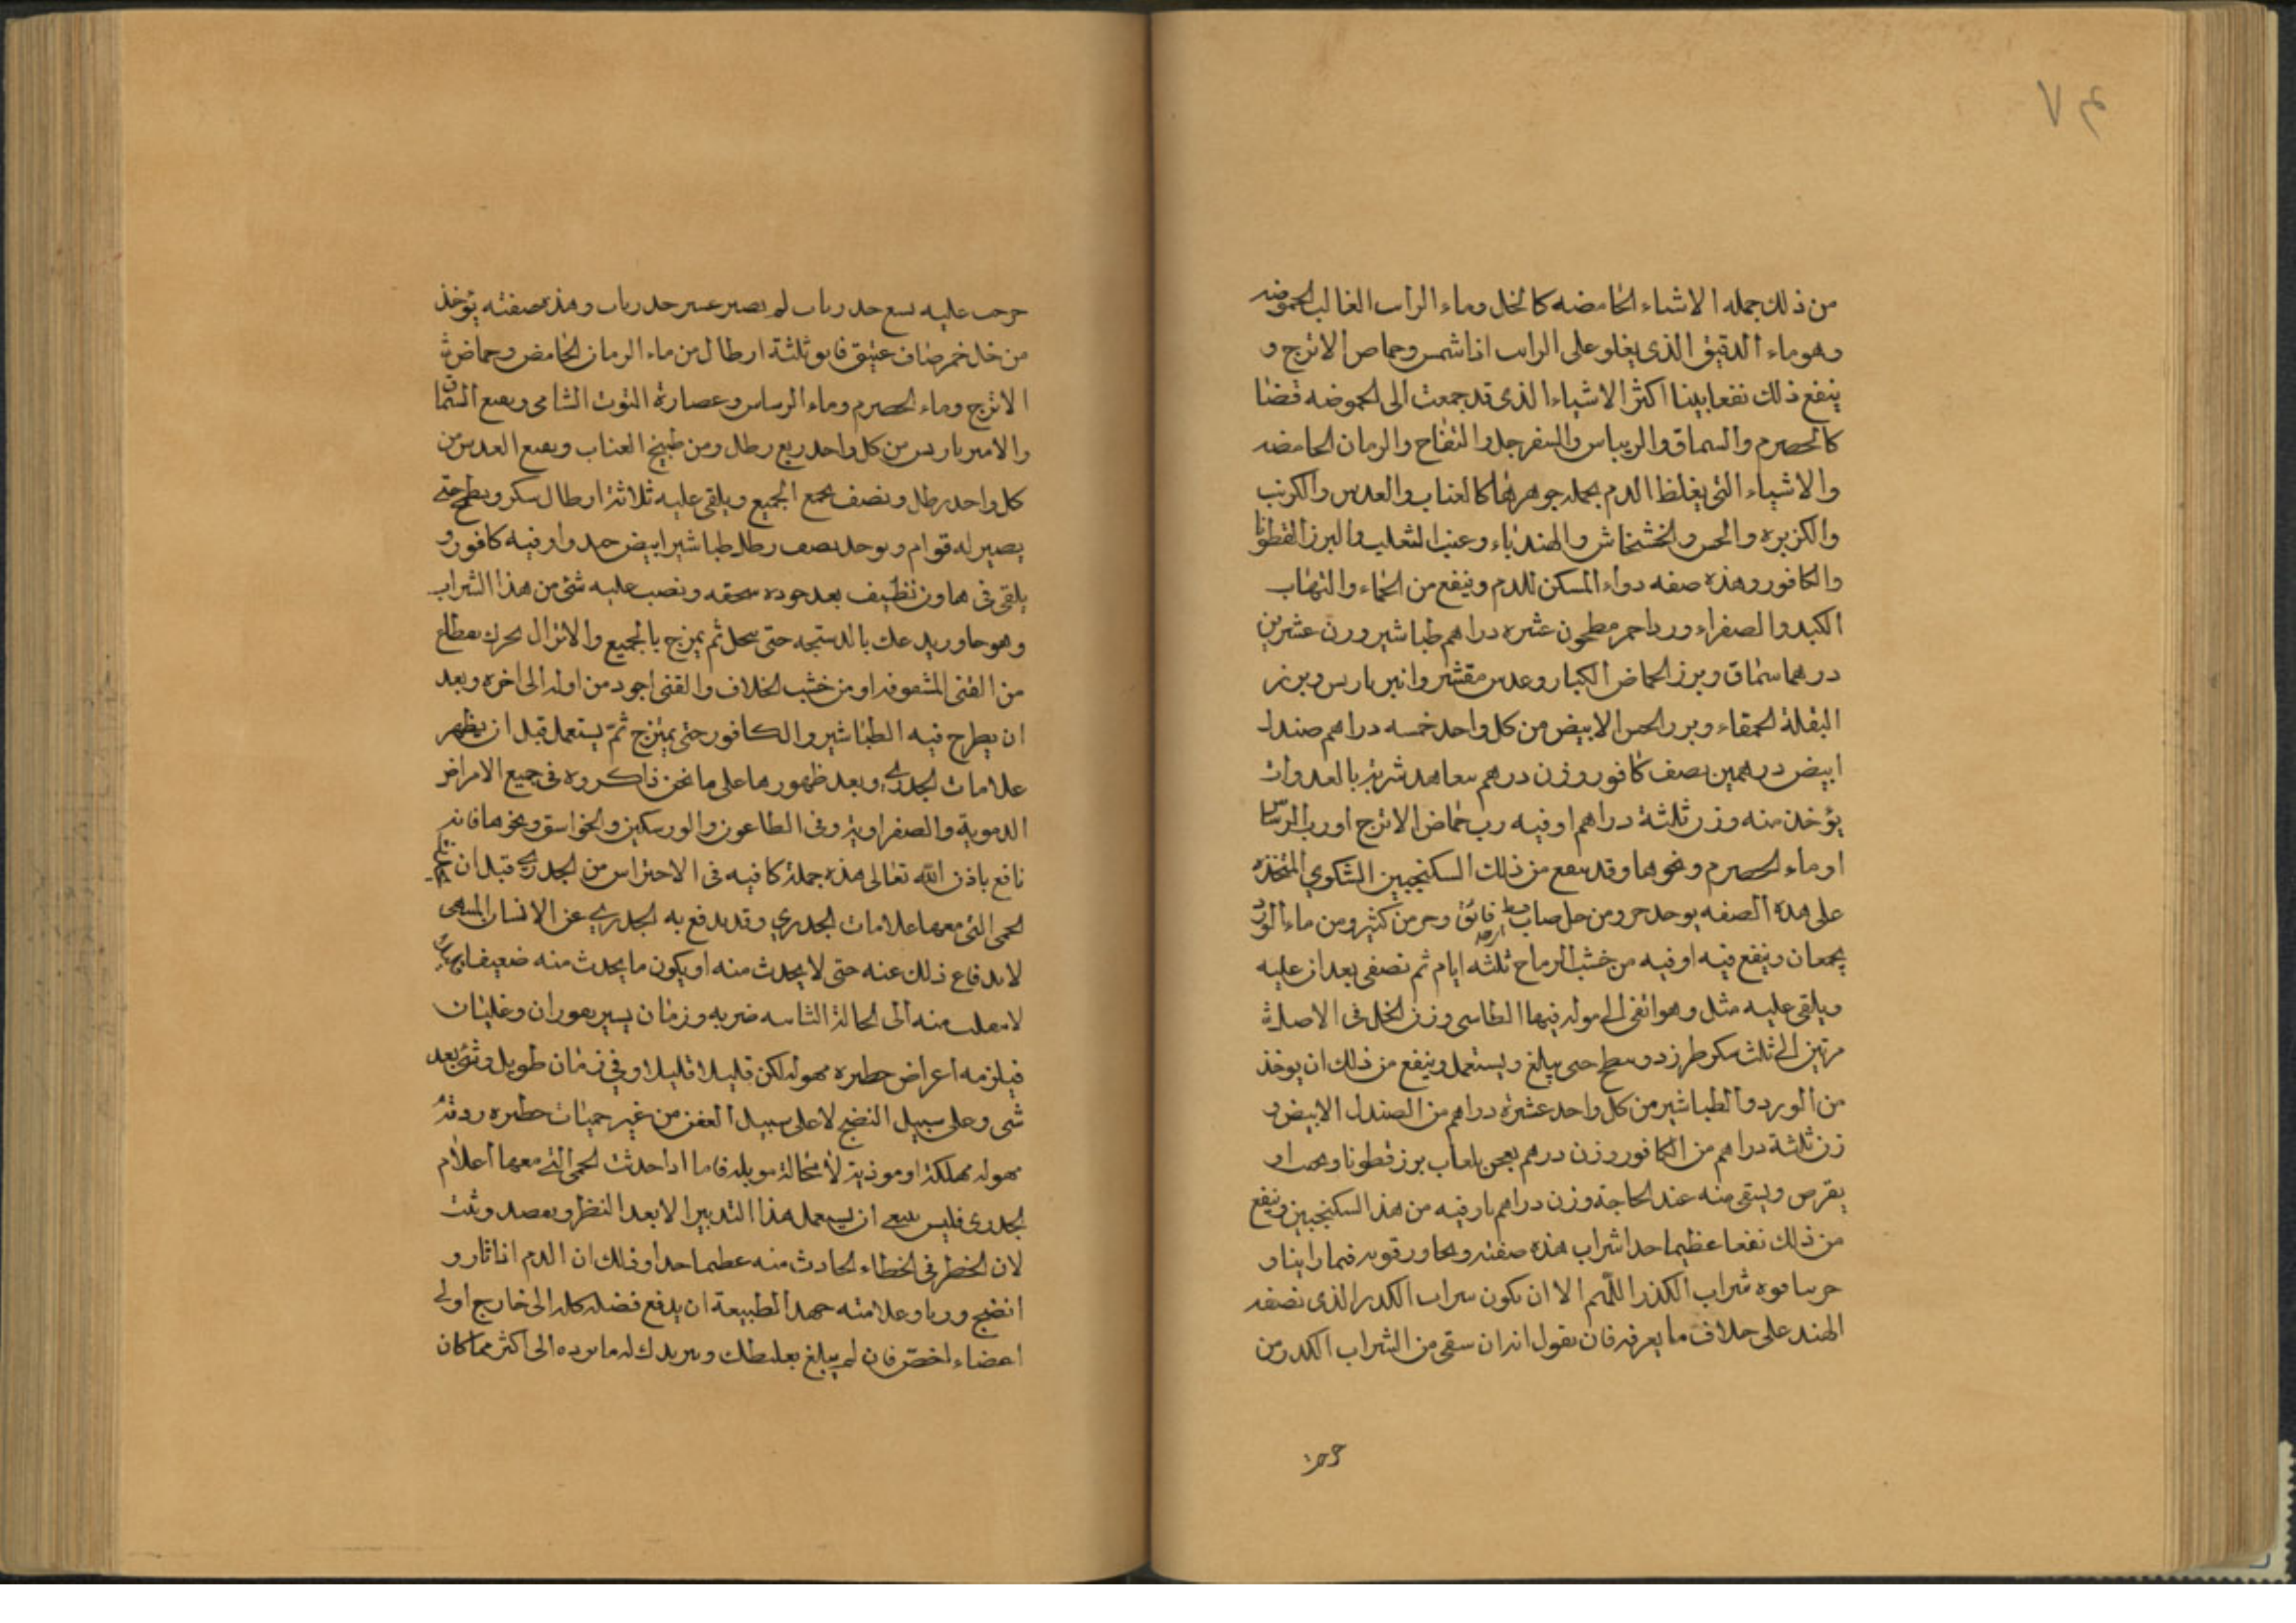 ٨٤
من ذلك جمله الاشياء الحامضه كالخل وماء الراىب الغالب الحموضه
وهو ماء الدقيق الذى يغلو على الراىب اذا شمس وحماص الاترج و
ينفع ذلك نفعا بينا اكثر الاشياء الذى قد جمعت الى الحموضه قضا
كالحصرم والسماق والريباس والسفرجل والتفاح والرمان الحامضه
والاشياء التى يغلظ الدم بجمله جوهرها كالعناب والعدس والكرنب
والكزبره والخس والخشخاش والهندباء وعنب الثعلب والبزرالقطونا
والكافور وهذه صفه دواء المسكن للدم وينفع من الحماء والتهاب
الكبد والصفراء ورد احمر مطحون عشره دراهم طباشير وزن عشرين
درهما سماق وبزر الحماض الكبار وعدس مقشر وانبرباريس وبزر
البقلة الحمقاء وبزر الخس الابيض من كل واحد خمسه دراهم صندل
ابيض درهمين نصف كافور وزن درهم ىعاهد شربه بالغدوات
يؤخذ منه وزن ثلثة دراهم اوقيه رب حماض الاترج او رب الريباس
او ماء الحصرم ونحوها وقد ينفع من ذلك السكنجبين السكري المتخذه
على هذه الصفه يوحد جزو من خل صاف فائق وجز من كثير ومن ماء الورد
يجمعان وينقع فيه اوقيه من خشب الرماح ثلثه ايام ثم تصفى بعد ان عليه
ويلقى عليه مثل وهو انقى الى فيها وزن الخل فى الاصل
مرتين الى ثلث سكر طبرزد ويطبخ حتى يبلغ ويستعمل وينفع من ذلك ان يوخذ
من الورد والطباشير من كل واحد عشرة دراهم من الصندل الابيض و
زن ثلثة دراهم من الكافور وزن درهم يعجن بلعاب بزر قطونا
يقرص ويسقى منه عند الحاجة وزن دراهم باوقيه من هذا السكنجبين وينفع
من ذلك نفعا عظيما جدا شراب هذه صفته قوته فيما راينا و
جربنا قوه شراب الكدر اللهم الا ان يكون شراب الكدر الذى تصفه
الهند على خلاف ما يعرفه فان تقول انه ان سقى من الشراب الكدر من
عليه تسع جدريات لم يصير عشر جدريات وهذه صفته يؤخذ
من خل خمر صاف عتيق فايق ثلثة ارطال من ماء الرمان الحامض وحماض
الاترج وماء الحصرم وماء الريباس وعصارة التوت الشامى ونقيع السماق
والامبرباريس من كل واحد ربع رطل ومن طبيخ العناب ونقيع العدس من
كل واحد رطل ونصف يجمع الجميع ويلقى عليه ثلاثة ارطال سكر ويطبخ حتى
يصير له قوام ويوخذ نصف رطل طباشير ابيض جيد واوقيه كافور و
يلقى فى هاون نظيف بعد جوده سحقه ونصب عليه شئ من هذا الشراب
وهو حار ويدعك بالدستجه حتى ينحل ثم يمزج بالجميع والانزال يحرك بقطاع
من القنى المثقوفه او من خشب الخلاف والقنى اجود من اوله الى اخره وبعد
ان يطرح فيه الطباشير والكافور حتى يمتزج ثم يستعمل قبل ان يظهر
علامات الجدري وبعد ظهورها على ما نحن ذاكروه فى جميع الامراض
الدموية والصفراويه وفى الطاعون والورسكين والخوانيق ونحوها فانه
نافع باذن الله تعالى هذه جملة كافيه فى الاحتراس من الجدري قبل ان
الحمى التى معها علامات الجدري وقد يدفع به الجدري عن الانسان
لاندفاع ذلك عنه حتى لا يحدث منه او يكون ما يحدث منه ضعيفا
لا ينقلب منه الى الحالة الثانيه ضربه وزمان يسير بفوران وغليان
فيلزمه اعراض خطره مهوله لكن قليلا قليلا وفي زمان طويل وشئ بعد
شى وعلى سبيل النضج لا على سبيل العفن من غير حميات خطره
مهوله مهلكة او موذية لا محالة فاما اذا حدثت الحمى التى معها اعلام
الجدرى فليس ينبغي ان يستعمل هذا التدبير الا بعد النظر وتقصد وتثبت
لان الخطر فى الخطاء الحادث منه عظيما جدا وذلك ان الدم اذا ثار و
انضج وربا وعلامته جهد الطبيعة ان يدفع فضله كله الى خارج او الى
اعضاء اخص فان لم يبلغ بغلظك وتبريدك له ما ىرده الى اكثر مما كان